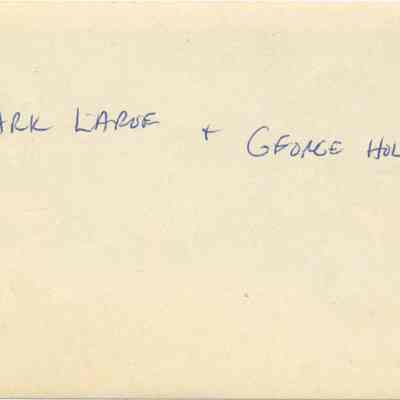 ARK LAROE + GEORGE HOL